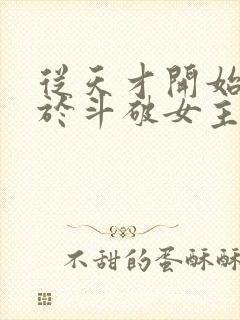 從天才開始
於斗破女主
不甜的蛋酥酥